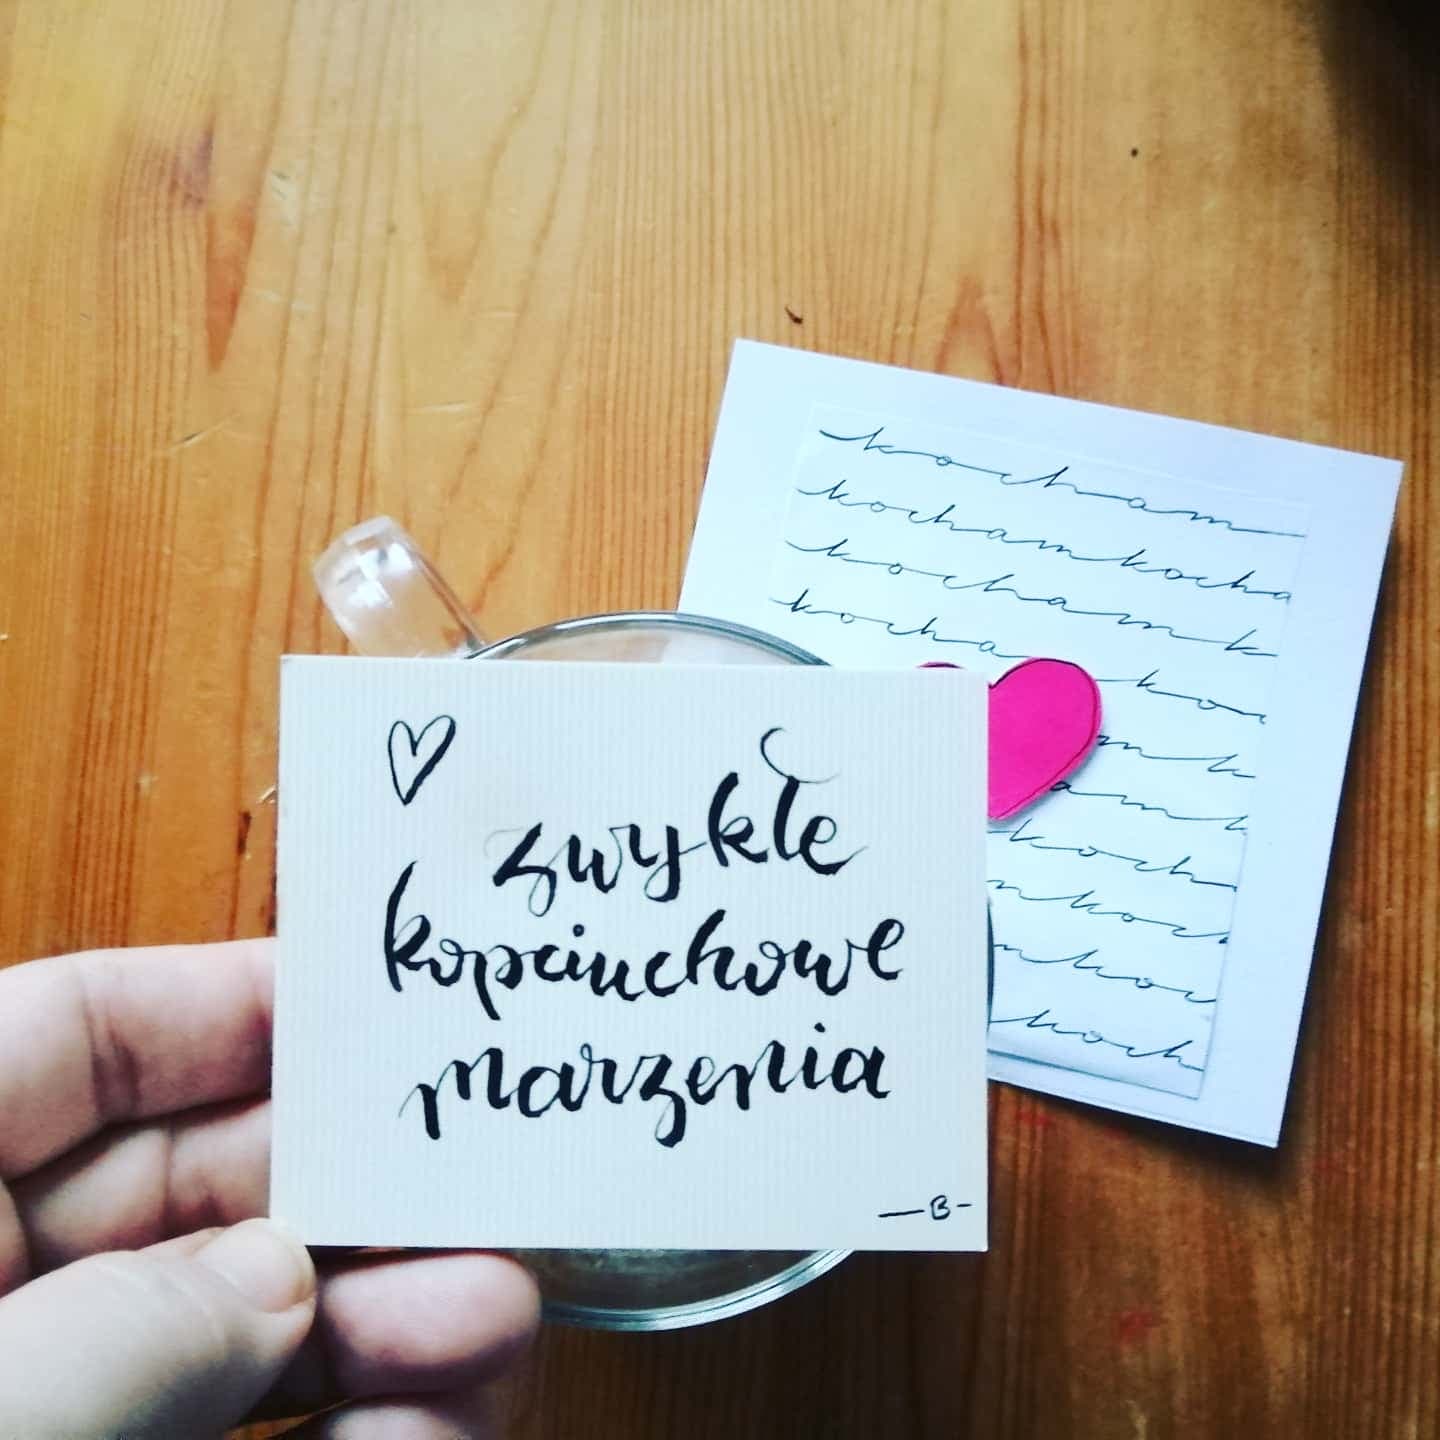 zwykłe
kopciuchowe
marzenia
—B-
kocham
kochamkocha
kochamk
kocha
koc
mk
amk
koch
mkoch
mkoc
koch